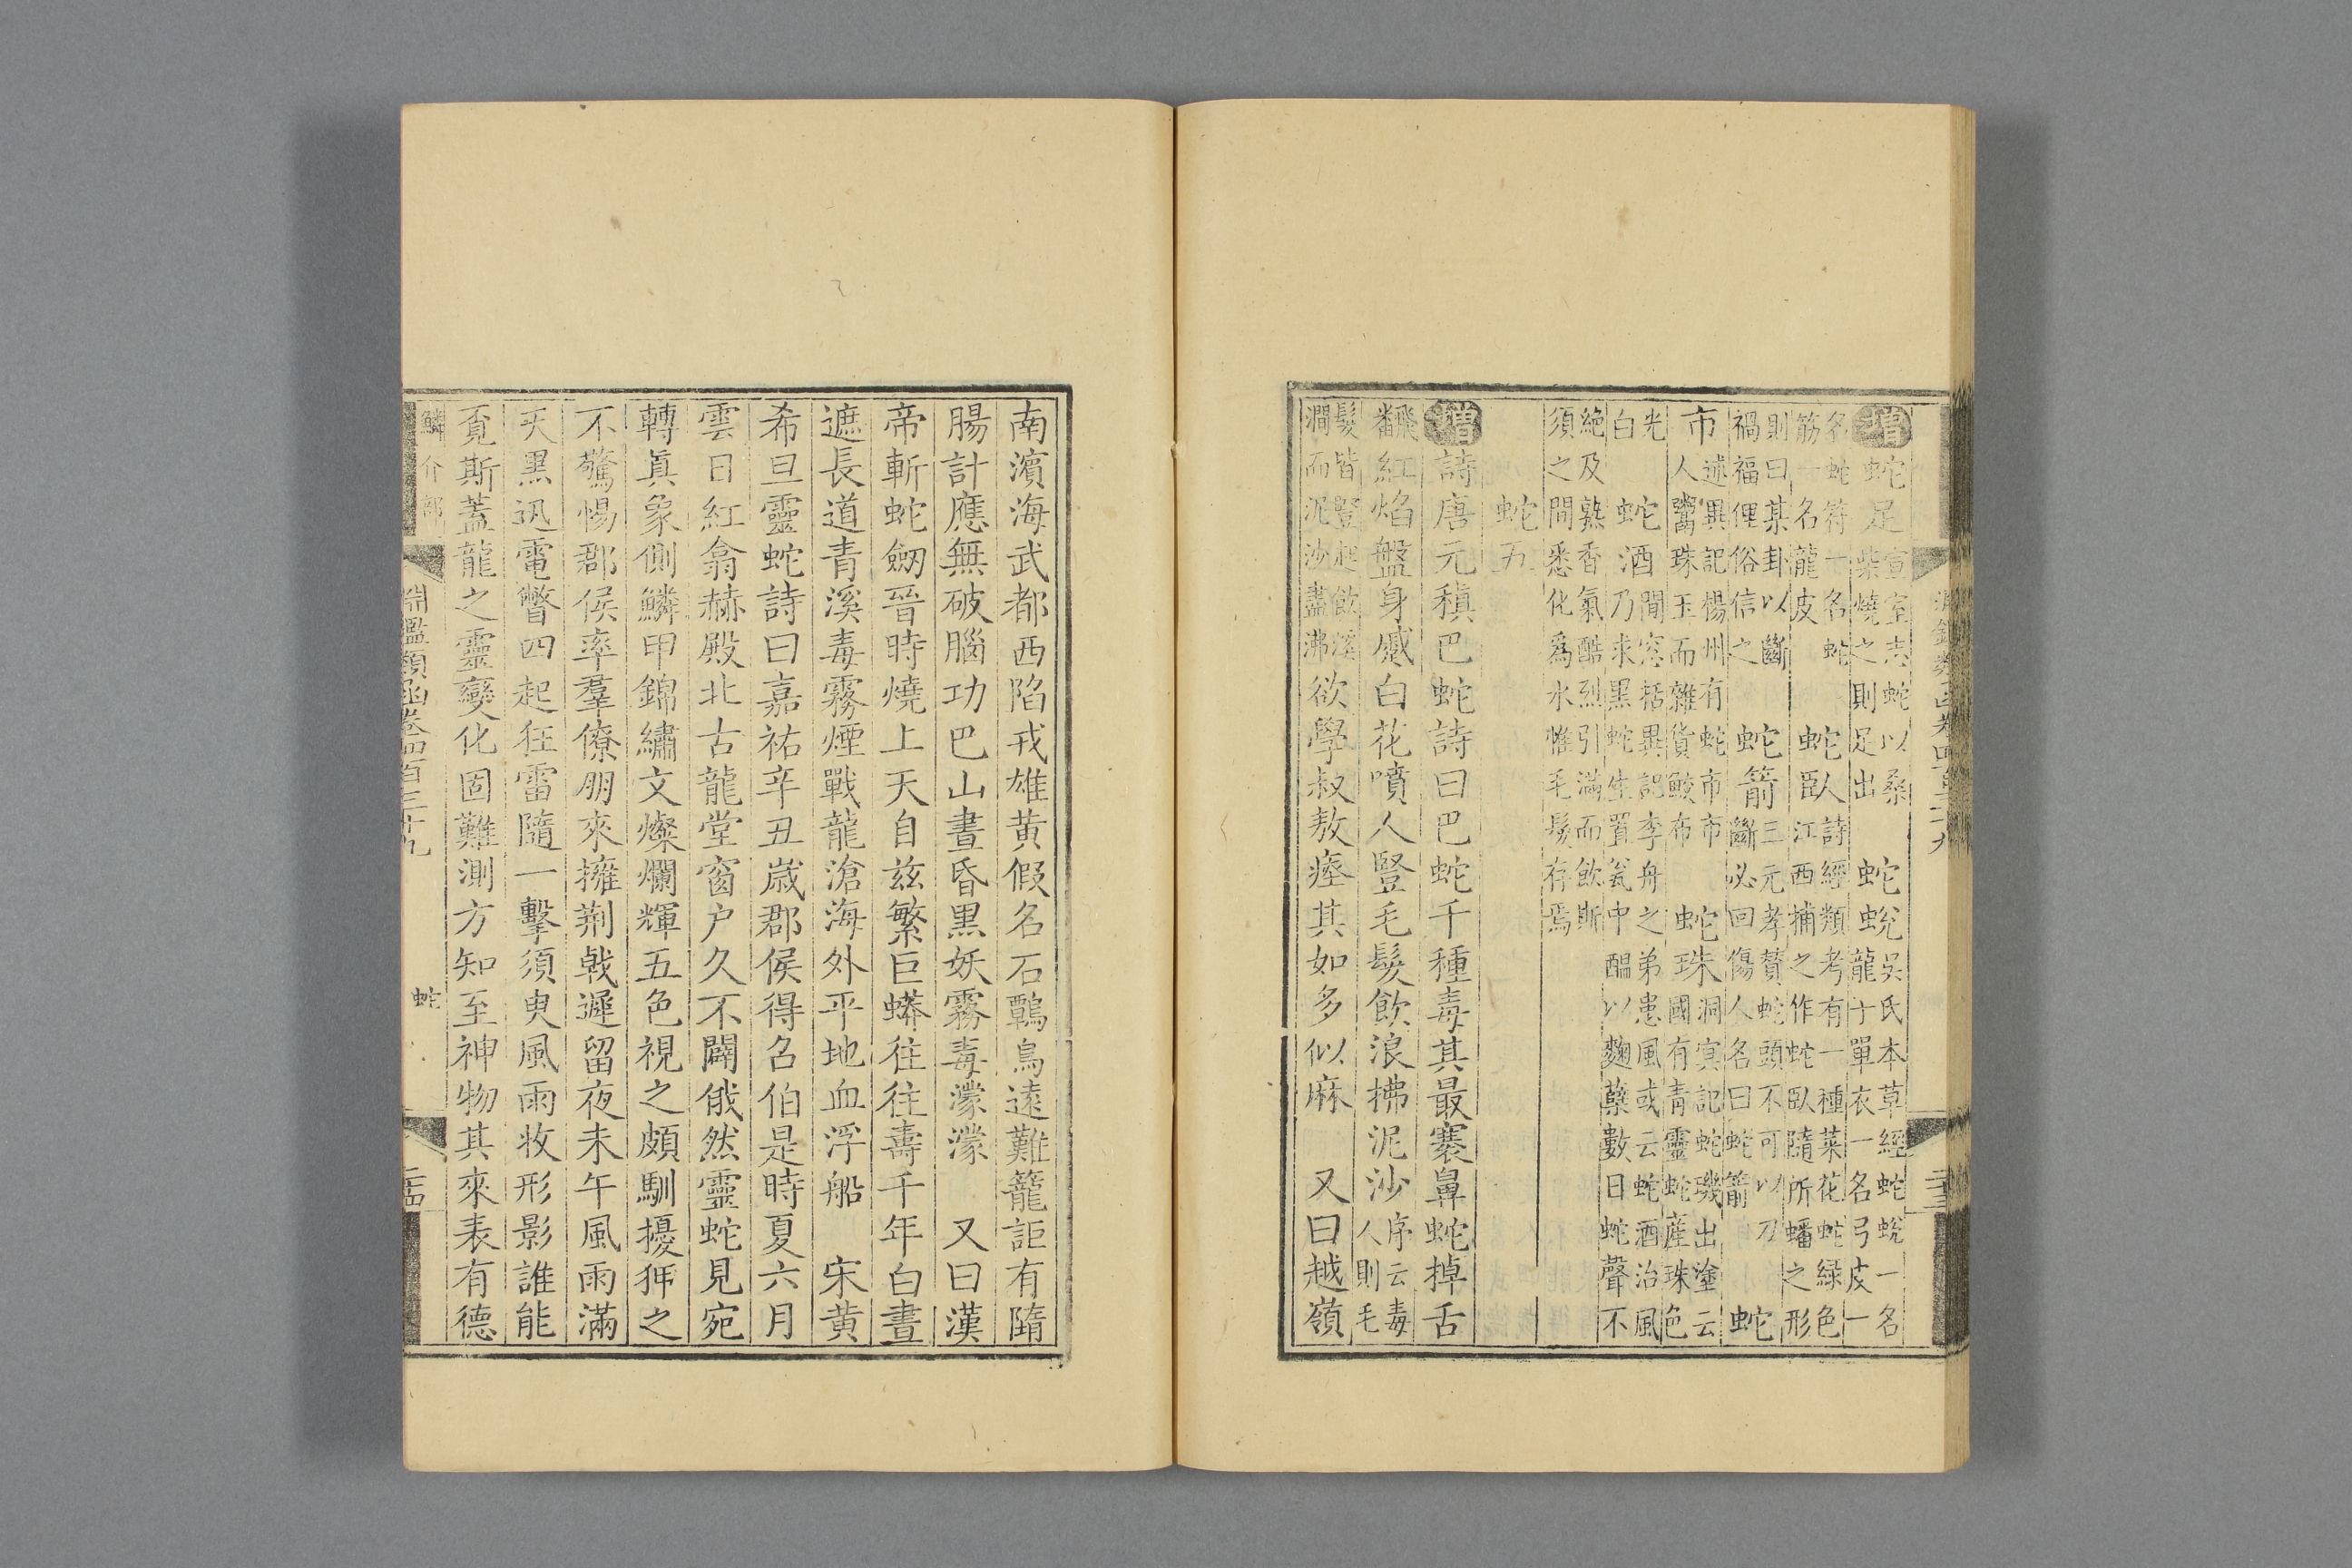 增蛇足宣室志蛇以桑柴燒之則足出　蛇蛻吳氏本草經蛇蛻一名龍子單衣一名弓皮一
名蛇符一名蛇筋一名龍皮　蛇臥詩經類考有一種菜花蛇綠色江西捕之作蛇臥隨所蟠之形
則曰某卦以斷禍福俚俗信之　蛇箭三元孝贊蛇頭不可以刀斷必回傷人名曰蛇箭　蛇
市述異記楊州有蛇市市人鬻珠玉而雜貨鮫布　蛇珠洞冥記蛇璣出塗云國有青靈蛇產珠色
光白　蛇酒聞窓括異記李舟之弟患風或云蛇酒治風乃求黑蛇生置瓮中醞以麴糵數日蛇聲不
絶及熟香氣酷烈引滿而飲斯須之間悉化爲水惟毛髮存焉
蛇五
增詩唐元稹巴蛇詩曰巴蛇千種毒其最褰鼻蛇掉舌
飜紅焰盤身蹙白花噴人豎毛髮飲浪拂泥沙序云毒人則毛
髮皆豎起飲溪澗而泥沙盡沸欲學叔敖瘞其如多似麻　又曰越嶺
南濱海武都西陷戎雄黃假名石鸛鳥遠難籠詎有隋
腸計應無破腦功巴山晝昏黑妖霧毒濛濛　又曰漢
帝斬蛇劒晉時燒上天自玆繁巨蟒往往壽千年白晝
遮長道青溪毒霧煙戰龍滄海外平地血浮船　宋黃
希旦靈蛇詩曰嘉祐辛丑歳郡侯得名伯是時夏六月
雲日紅翕赫殿北古龍堂窗户久不闢俄然靈蛇見宛
轉眞象側鱗甲錦繡文燦爛輝五色視之頗馴擾狎之
不驚惕郡侯率羣僚朋來擁荆戟遲留夜未午風雨滿
天黑迅電瞥四起狂雷隨一擊須臾風雨收形影誰能
覔斯蓋龍之靈變化固難測方知至神物其來表有德
鱗介部　淵鑑類函卷四百三十九　蛇　二十四